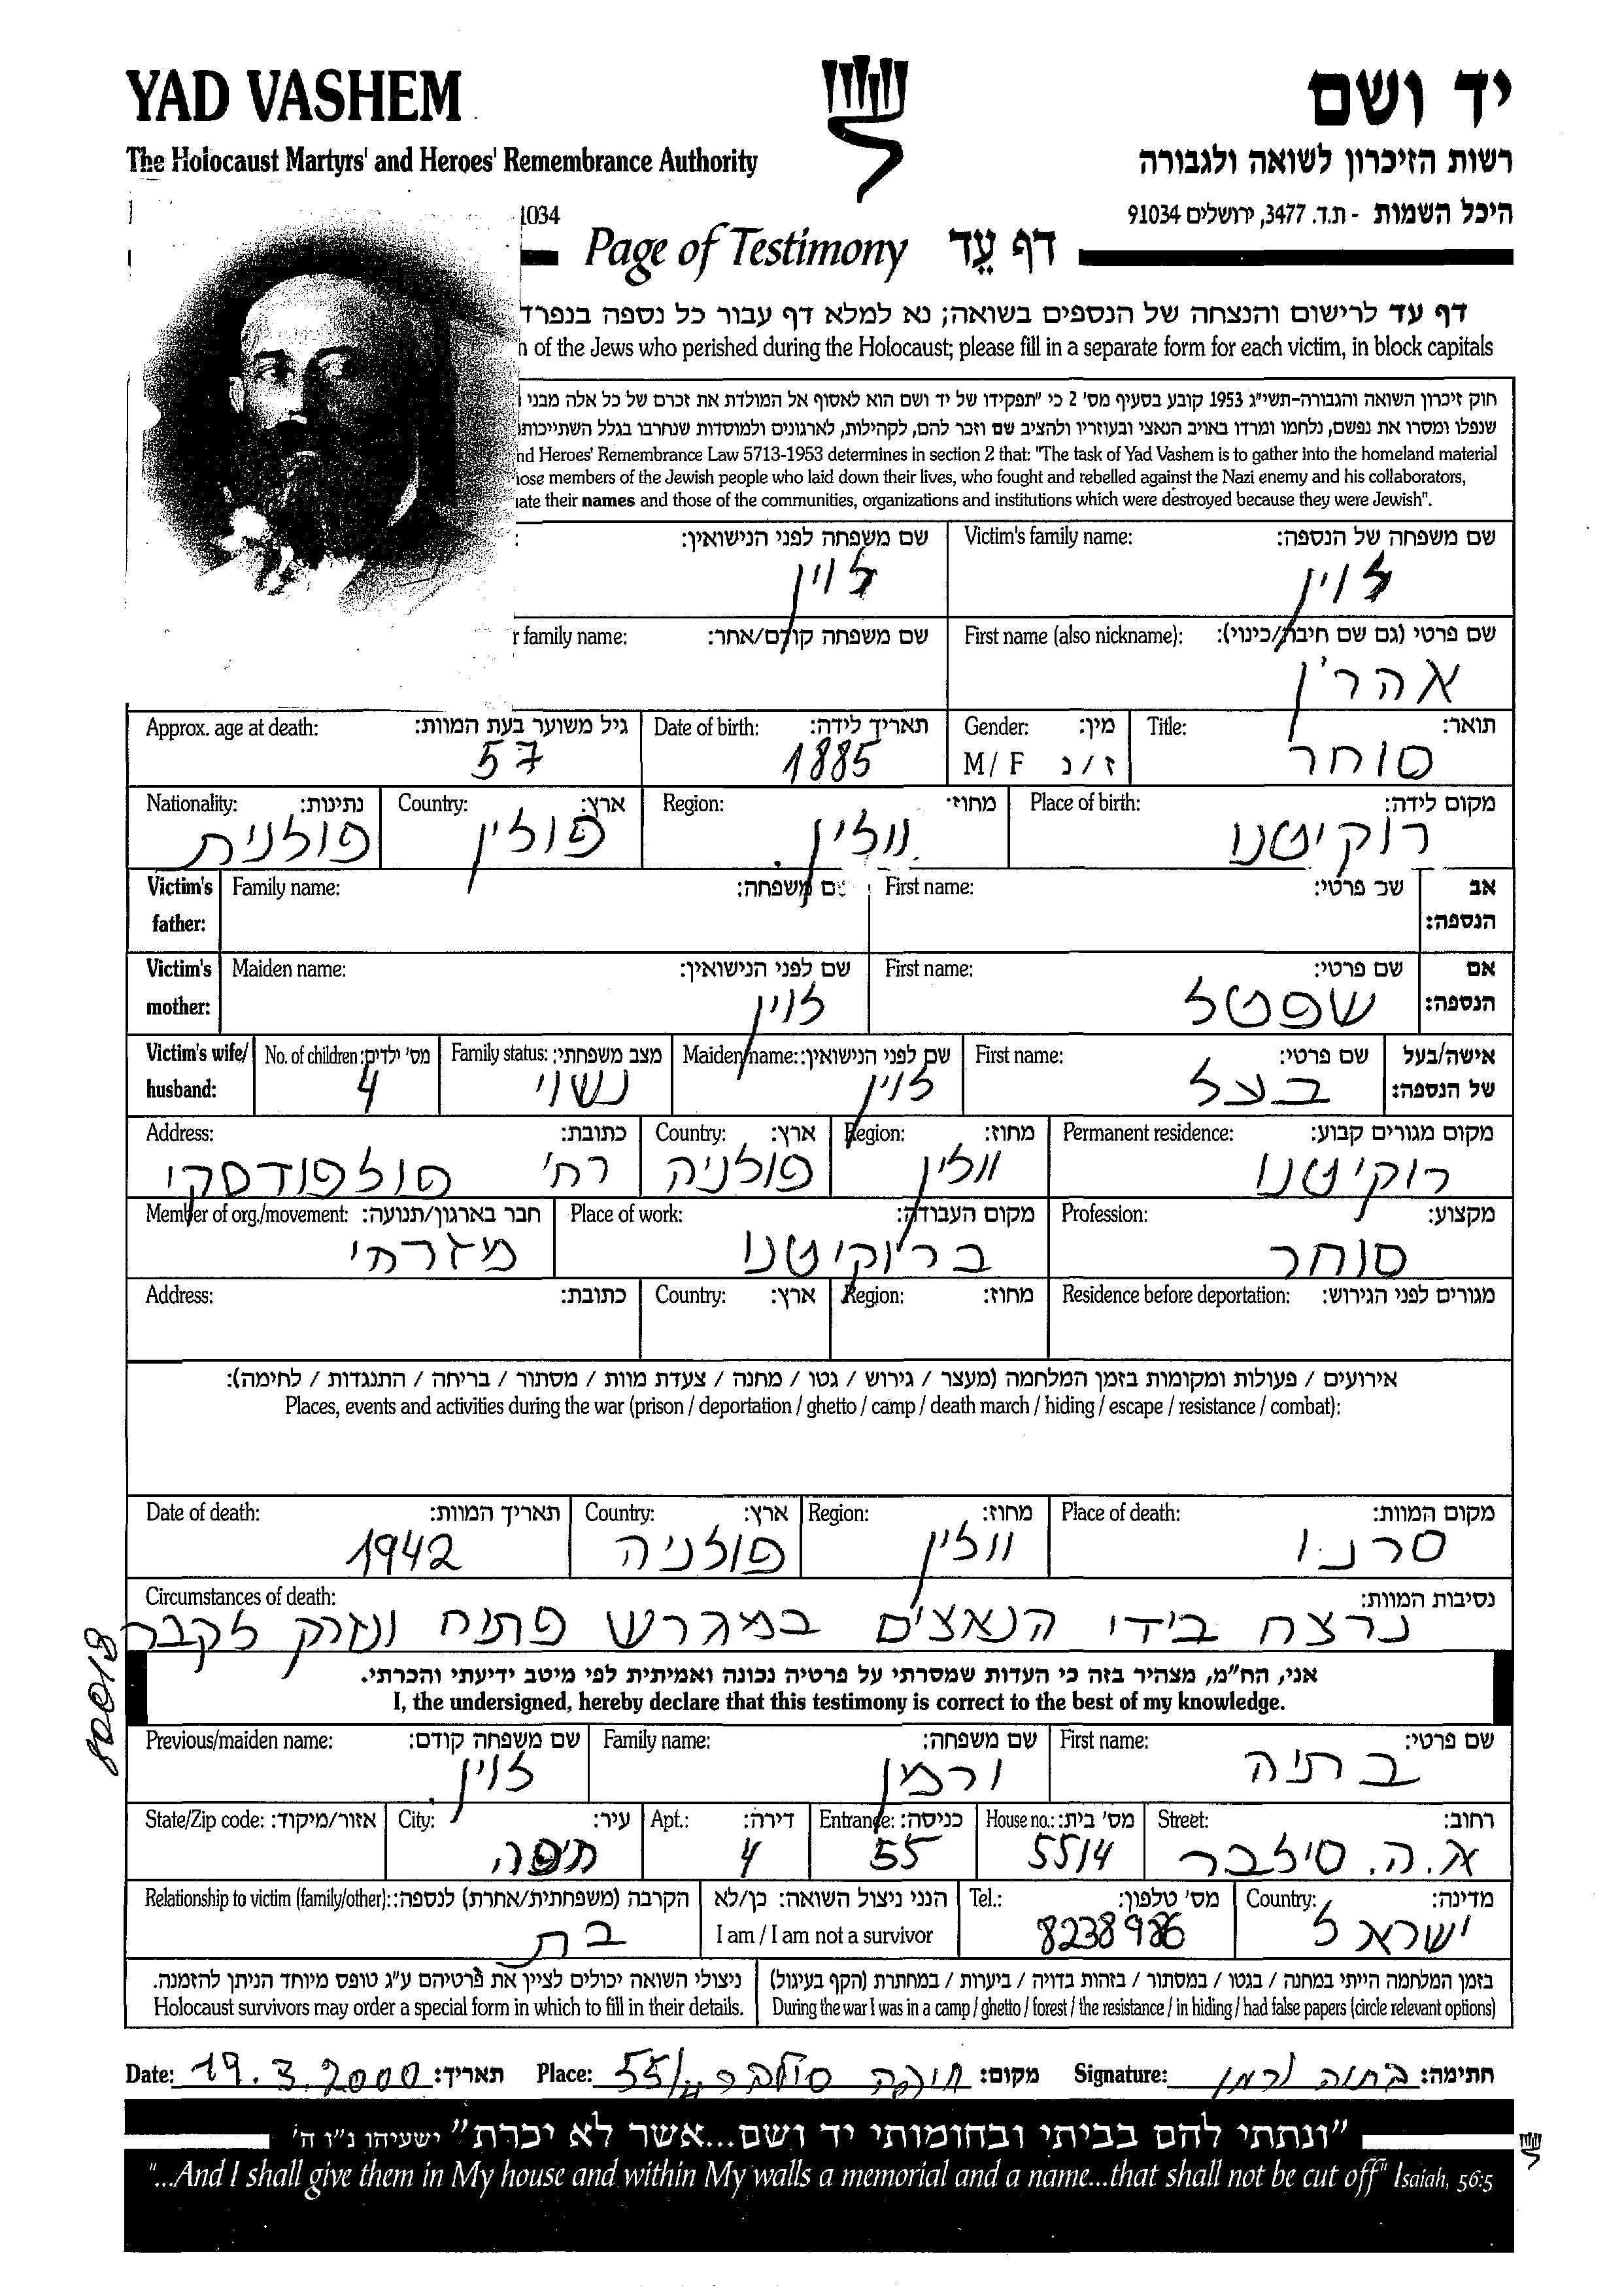 YAD VASHEM
יד ושם
The Holocaust Martyrs' and Heroes' Remembrance Authority
רשות הזיכרון לשואה ולגבורה
1034
היכל השמות - ת.ד. 3477, ירושלים 91034
Page of Testimony דף עֵד
דף עד לרישום והנצחה של הנספים בשואה; נא למלא דף עבור כל נספה בנפרד
n of the Jews who perished during the Holocaust; please fill in a separate form for each victim, in block capitals
חוק זיכרון השואה והגבורה-תשי"ג 1953 קובע בסעיף מס' 2 כי "תפקידו של יד ושם הוא לאסוף אל המולדת את זכרם של כל אלה מבני
שנפלו ומסרו את נפשם, נלחמו ומרדו באויב הנאצי ובעוזריו ולהציב שם וזכר להם, לקהילות, לארגונים ולמוסדות שנחרבו בגלל השתייכות
nd Heroes' Remembrance Law 5713-1953 determines in section 2 that: "The task of Yad Vashem is to gather into the homeland material
ose members of the Jewish people who laid down their lives, who fought and rebelled against the Nazi enemy and his collaborators,
ate their names and those of the communities, organizations and institutions which were destroyed because they were Jewish".
Victim's family name: שם משפחה של הנספה:
לוין
שם משפחה לפני הנישואין:
לוין
First name (also nickname): שם פרטי (גם שם חיבה/כינוי):
אהרן
r family name: שם משפחה קודם/אחר:
Title: תואר:
סוחר
Gender: מין:
M/ F ז / נ
Date of birth: תאריך לידה:
1885
Approx. age at death: גיל משוער בעת המוות:
57
Place of birth: מקום לידה:
רוקיטנו
Region: מחוז:
וולין
Country: ארץ:
פולין
Nationality: נתינות:
פולנית
Victim's father: אב הנספה:
First name: שם פרטי:
Family name: שם משפחה:
Victim's mother: אם הנספה:
First name: שם פרטי:
שפטל
Maiden name: שם לפני הנישואין:
לוין
Victim's wife/ husband: אישה/בעל של הנספה:
First name: שם פרטי:
בעל
Maiden name: שם לפני הנישואין:
לוין
Family status: מצב משפחתי:
נשוי
No. of children: מס' ילדים:
4
Permanent residence: מקום מגורים קבוע:
רוקיטנו
Region: מחוז:
וולין
Country: ארץ:
פולניה
Address: כתובת:
רח' פולפודסקי
Profession: מקצוע:
סוחר
Place of work: מקום העבודה:
ברוקיטנו
Member of org./movement: חבר בארגון/תנועה:
מזרחי
Residence before deportation: מגורים לפני הגירוש:
Region: מחוז:
Country: ארץ:
Address: כתובת:
אירועים / פעולות ומקומות בזמן המלחמה (מעצר / גירוש / גטו / מחנה / צעדת מוות / מסתור / בריחה / התנגדות / לחימה):
Places, events and activities during the war (prison / deportation / ghetto / camp / death march / hiding / escape / resistance / combat):
Place of death: מקום המוות:
סרני
Region: מחוז:
וולין
Country: ארץ:
פולניה
Date of death: תאריך המוות:
1942
Circumstances of death: נסיבות המוות:
נרצח בידי הנאצים במגרש פתוח ונזרק לקבר
אני, הח"מ, מצהיר בזה כי העדות שמסרתי על פרטיה נכונה ואמיתית לפי מיטב ידיעתי והכרתי.
I, the undersigned, hereby declare that this testimony is correct to the best of my knowledge.
First name: שם פרטי:
בתיה
Family name: שם משפחה:
ורמן
Previous/maiden name: שם משפחה קודם:
לוין
Street: רחוב:
א.ה. סילבר
House no.: מס' בית:
55/4
Entrance: כניסה:
55
Apt.: דירה:
4
City: עיר:
חיפה
State/Zip code: אזור/מיקוד:
Country: מדינה:
ישראל
Tel.: מס' טלפון:
8238986
הנני ניצול השואה: כן/לא
I am / I am not a survivor
Relationship to victim (family/other): הקרבה (משפחתית/אחרת) לנספה:
בת
בזמן המלחמה הייתי במחנה / בגטו / במסתור / בזהות בדויה / ביערות / במחתרת (הקף בעיגול)
During the war I was in a camp / ghetto / forest / the resistance / in hiding / had false papers (circle relevant options)
ניצולי השואה יכולים לציין את פרטיהם ע"ג טופס מיוחד הניתן להזמנה.
Holocaust survivors may order a special form in which to fill in their details.
Date: 19.3.2000 תאריך: Place: חיפה סילבר 55/4 מקום: Signature: בתיה ורמן חתימה:
"ונתתי להם בביתי ובחומותי יד ושם...אשר לא יכרת" ישעיהו נ"ו ה'
"...And I shall give them in My house and within My walls a memorial and a name...that shall not be cut off" Isaiah, 56:5